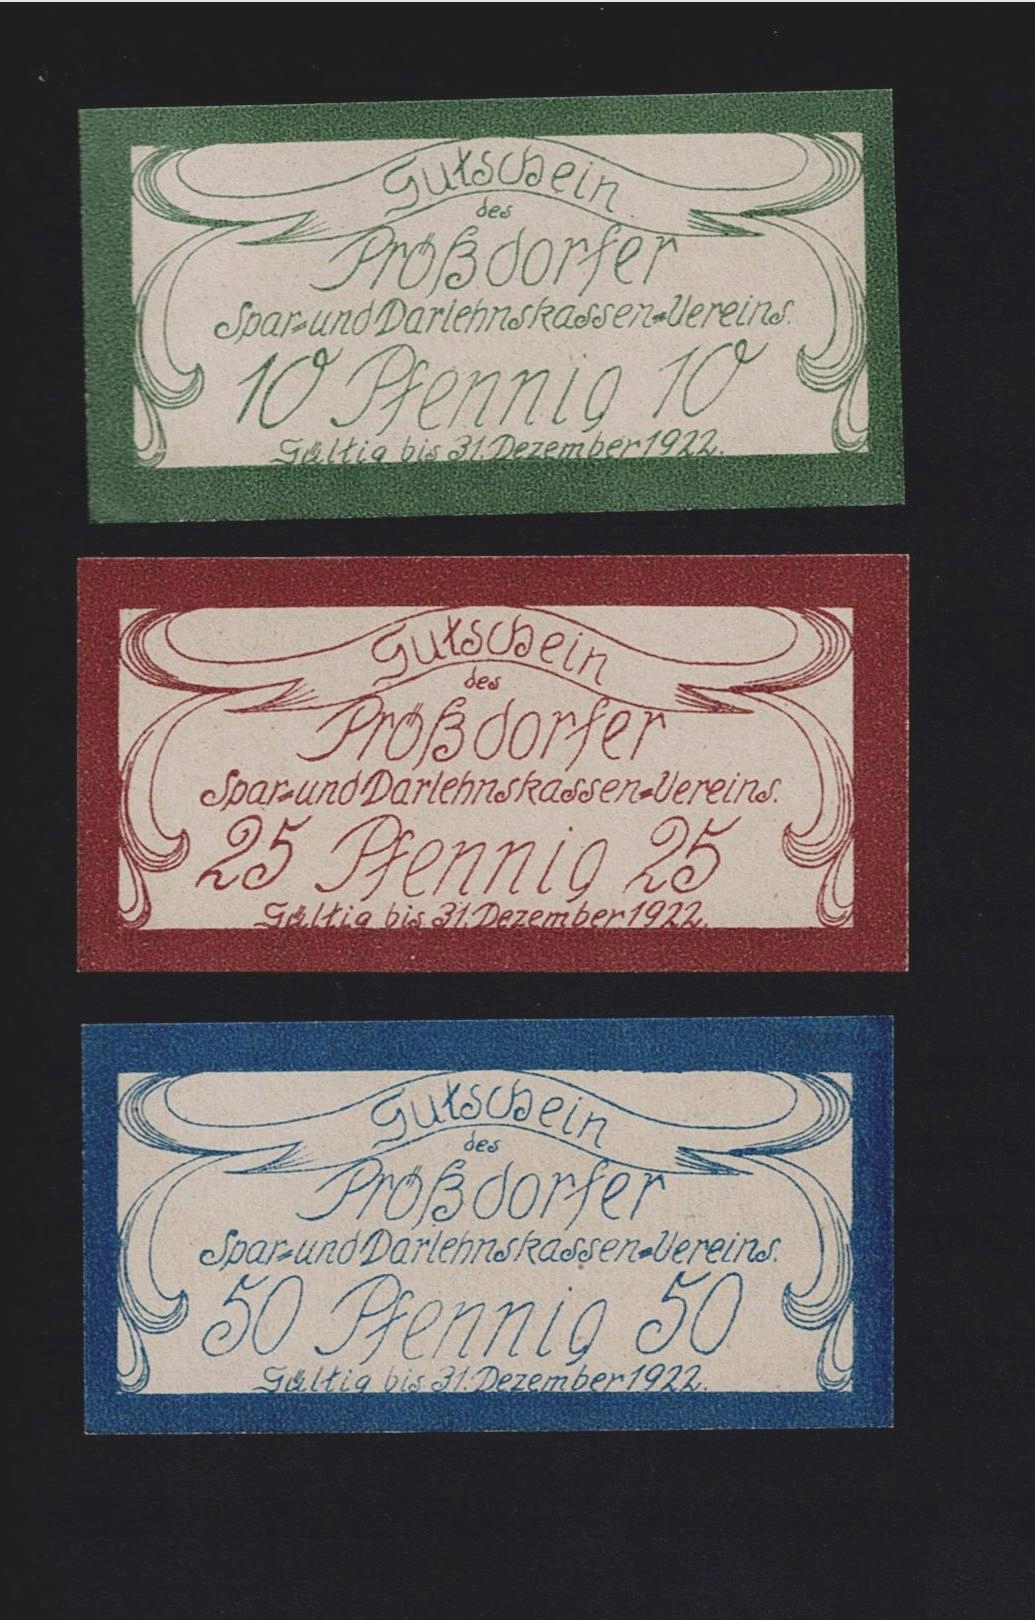 Gutschein
des
Prößdorfer
Spar=und Darlehnskassen=Vereins.
10 Pfennig 10
Gültig bis 31. Dezember 1922.
Gutschein
des
Prößdorfer
Spar=und Darlehnskassen=Vereins.
25 Pfennig 25
Gültig bis 31. Dezember 1922.
Gutschein
des
Prößdorfer
Spar=und Darlehnskassen=Vereins.
50 Pfennig 50
Gültig bis 31. Dezember 1922.